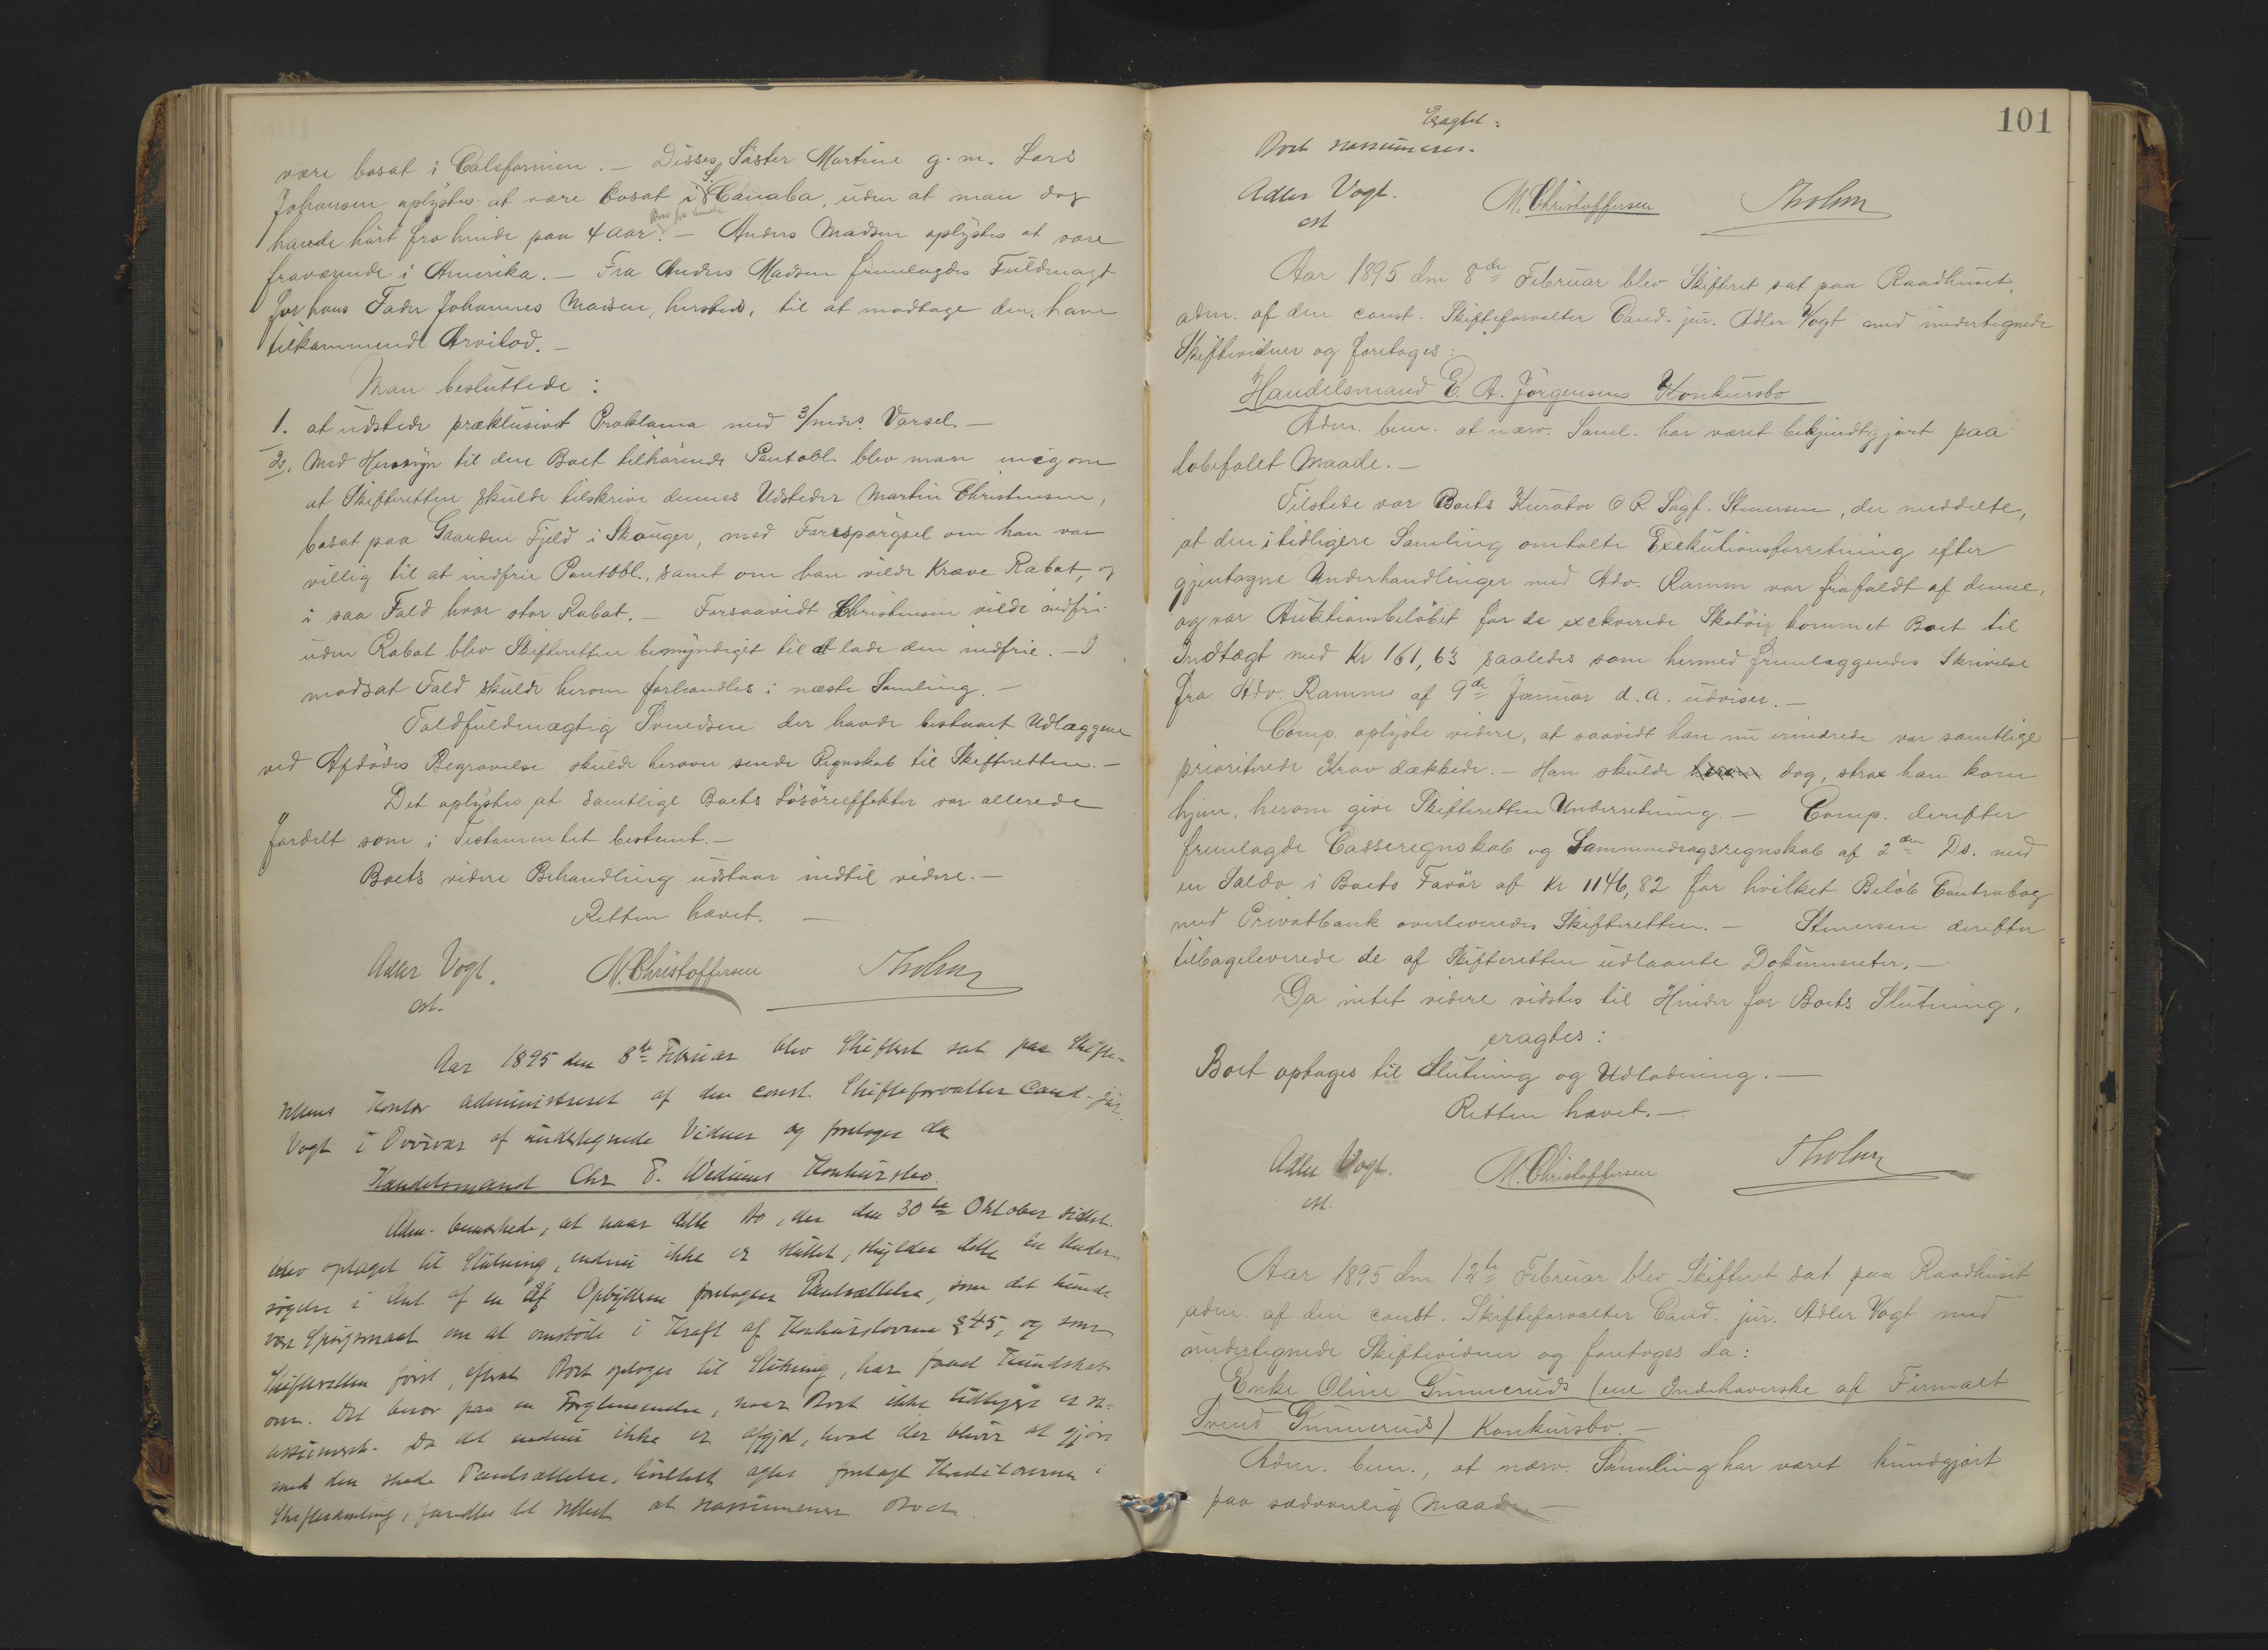 være bosat i Calefornien. — Disses Søster Martine g. m. Lars
Johansen oplystes at være bosat i Canaba, uden at man dog
havde hørt fra hende paa 4 aar. — Anders Madsen oplystes at være
fraværende i Amerika. — Fra Anders Madsen fremlagdes Fuldmagt
for hans Fader Johannes Madsen, hersteds, til at modtage den ham
tilkommende Arvelod. —
Man besluttede :
1. at udstede præklusivt Proklama med 3/mdrs. Varsel. —
2. Med Hensyn til den Boet tilhørende Pantobl. blev man enig om
at Skifteretten skulde tilskrive dennes Udsteder Martin Christensen,
bosat paa Gaarden Fjeld i Skouger, med Forespørgsel om han var
villig til at indfrie Pantobl., samt om han vilde kræve Rabat, og
i saa Fald hvor stor Rabat. — Forsaavidt Christensen vilde indfri
uden Rabat blev Skifteretten bemyndiget til at lade den indfrie. — I
modsat Fald skulde herom forhandles i næste Samling. —
Toldfuldmægtig Svendsen der havde bestaaet Udlæggene
ved Afdødes Begravelse skulde herover sende Regnskab til Skifteretten. —
Det oplystes at samtlige Boets Løsøreeffekter var allerede
fordelt som i Testamentet bestemt. —
Boets videre Behandling udstaar indtil videre. —
Retten hævet. —
Adler Vogt. M. Christoffersen Tholm
cst.
Aar 1895 den 8de Februar blev Skifteret sat paa Skifte-
rettens Kontor administreret af den const. Skifteforvalter Cand. jur.
Vogt i Overvær af undertegnede Vidner og foretoges da
Handelsmand Chr. F. Wediens Konkursbo.
Adm. bemærkede, at naar dette Bo, der den 30te Oktober sidstl.
blev optaget til Slutning, endnu ikke er sluttet, skyldes dette en Under-
søgelse i Anl. af en af Opbyderen foretagen Pantsættelse, som det kunde
være Spørgsmaal om at omstøde i Kraft af Konkurslovens § 45, og som
Skifteretten først, efterat Boet optoges til Slutning, har faaet Kundskab
om. Det beror paa en Forglemmelse, naar Boet ikke tidligere er re-
assumeret. Da det endnu ikke er afgjort, hvad der bliver at gjøre
med den skede Pantsættelse, hvilket agtes forelagt Kreditorerne i
Skiftesamling, fandtes det rettest at reassumere Boet.
101
Eragtet :
Boet reassumeres.
Adler Vogt. M. Christoffersen Tholm
cst
Aar 1895 den 8de Februar blev Skifteret sat paa Raadhuset,
adm. af den const. Skifteforvalter Cand. jur. Adler Vogt med undertegnede
Skiftevidner og foretoges :
Handelsmand E. A. Jørgensens Konkursbo
Adm. bem. at nærv. Saml. har været bekjendtgjort paa
lobefalet Maade. —
Tilstede var Boets Kurator O R Sagf. Stenersen, der meddelte,
at den i tidligere Samling omtalte Exekutionsforretning efter
gjentagne Underhandlinger med Adv. Ramm var frafaldt af denne,
og var Auktionsbeløbet for de exekverede Skotøi kommet Boet til
Indtægt med Kr 161,63 saaledes som hermed fremlæggendes Skrivelse
fra Adv. Ramme af 9de Januar d. a. udviser. —
Comp. oplyste videre, at saavidt han nu erindrede var samtlige
prioriterede Krav dækkede. — Han skulde herom dog, strax han kom
hjem, herom give Skifteretten Underretning. — Comp. derefter
fremlagde Casseregnskab og Sammendragsregnskab af 2den Ds. med
en Saldo i Boets Favør af Kr 1146,82 for hvilket Beløb Contrabog
med Privatbank overleveredes Skifteretten. — Stenersen derefter
tilbageleverede de af Skifteretten udlaante Dokumenter. —
Da intet videre vidstes til Hinder for Boets Slutning,
eragtes :
Boet optages til Slutning og Udlodning. —
Retten hævet. —
Adler Vogt. M. Christoffersen Tholm
cst.
Aar 1895 den 12te Februar blev Skifteret sat paa Raadhuset
adm. af den const. Skifteforvalter Cand. jur. Adler Vogt med
undertegnede Skiftevidner og foretoges da :
Enke Oline Gunneruds (ene Indehaverske af Firmaet
Svend Gunnerud) Konkursbo. —
Adm. bem., at nærv. Samling har været kundgjort
paa sædvanlig Maade —